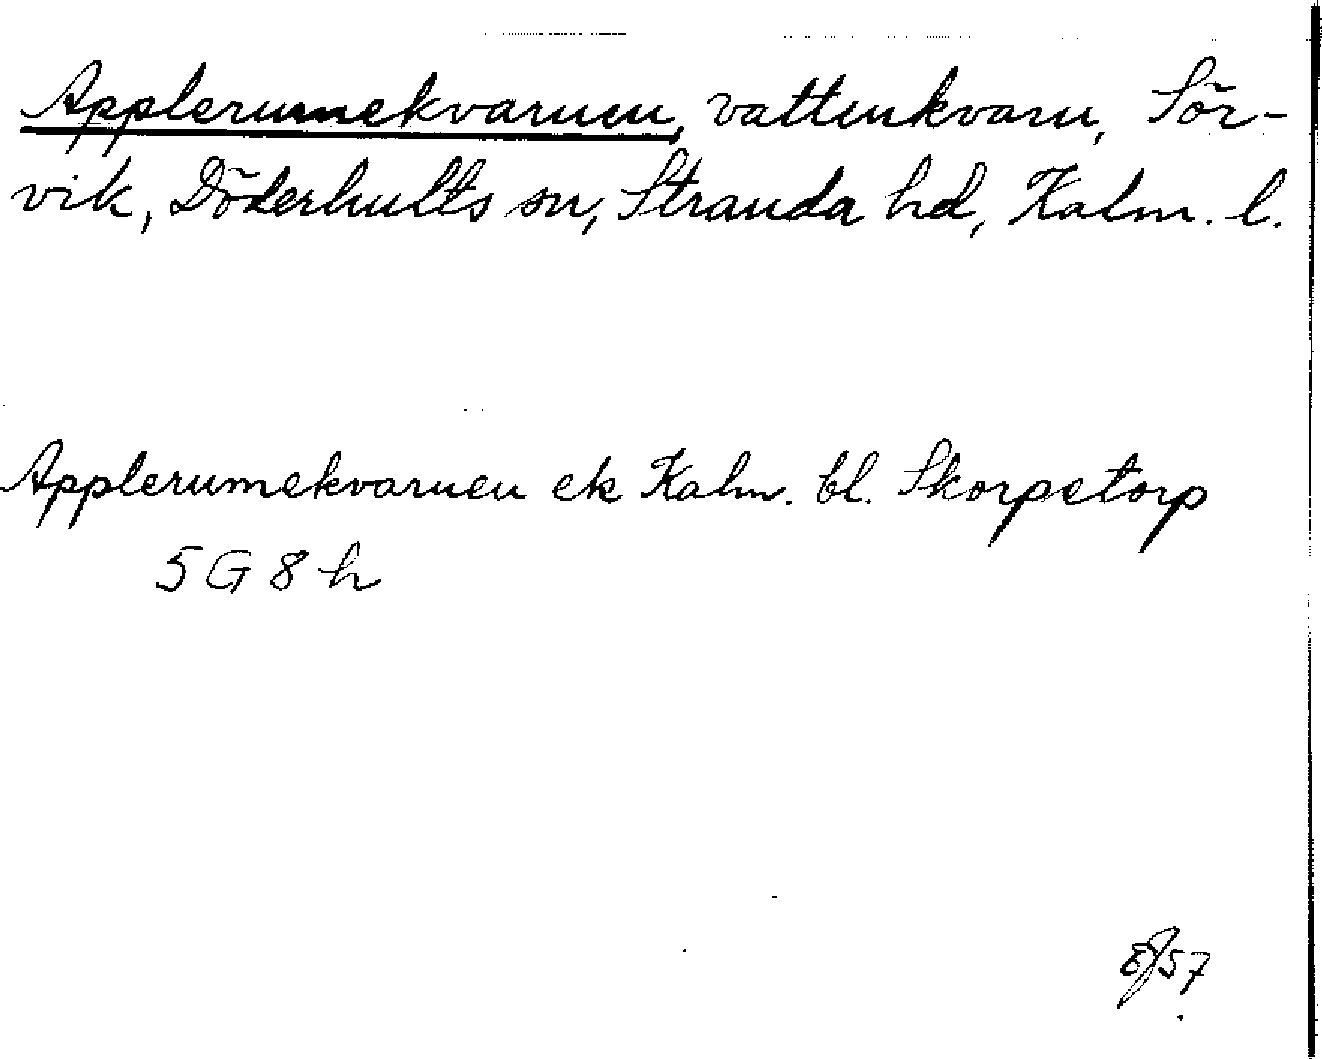 Applerumekvarnen, vattenkvarn, Sör-
vik, Döderhults sn, Stranda hd, Kalm. l.
Applerumekvarnen ek Kalm. bl. Skorpetorp
5 G 8 h
57